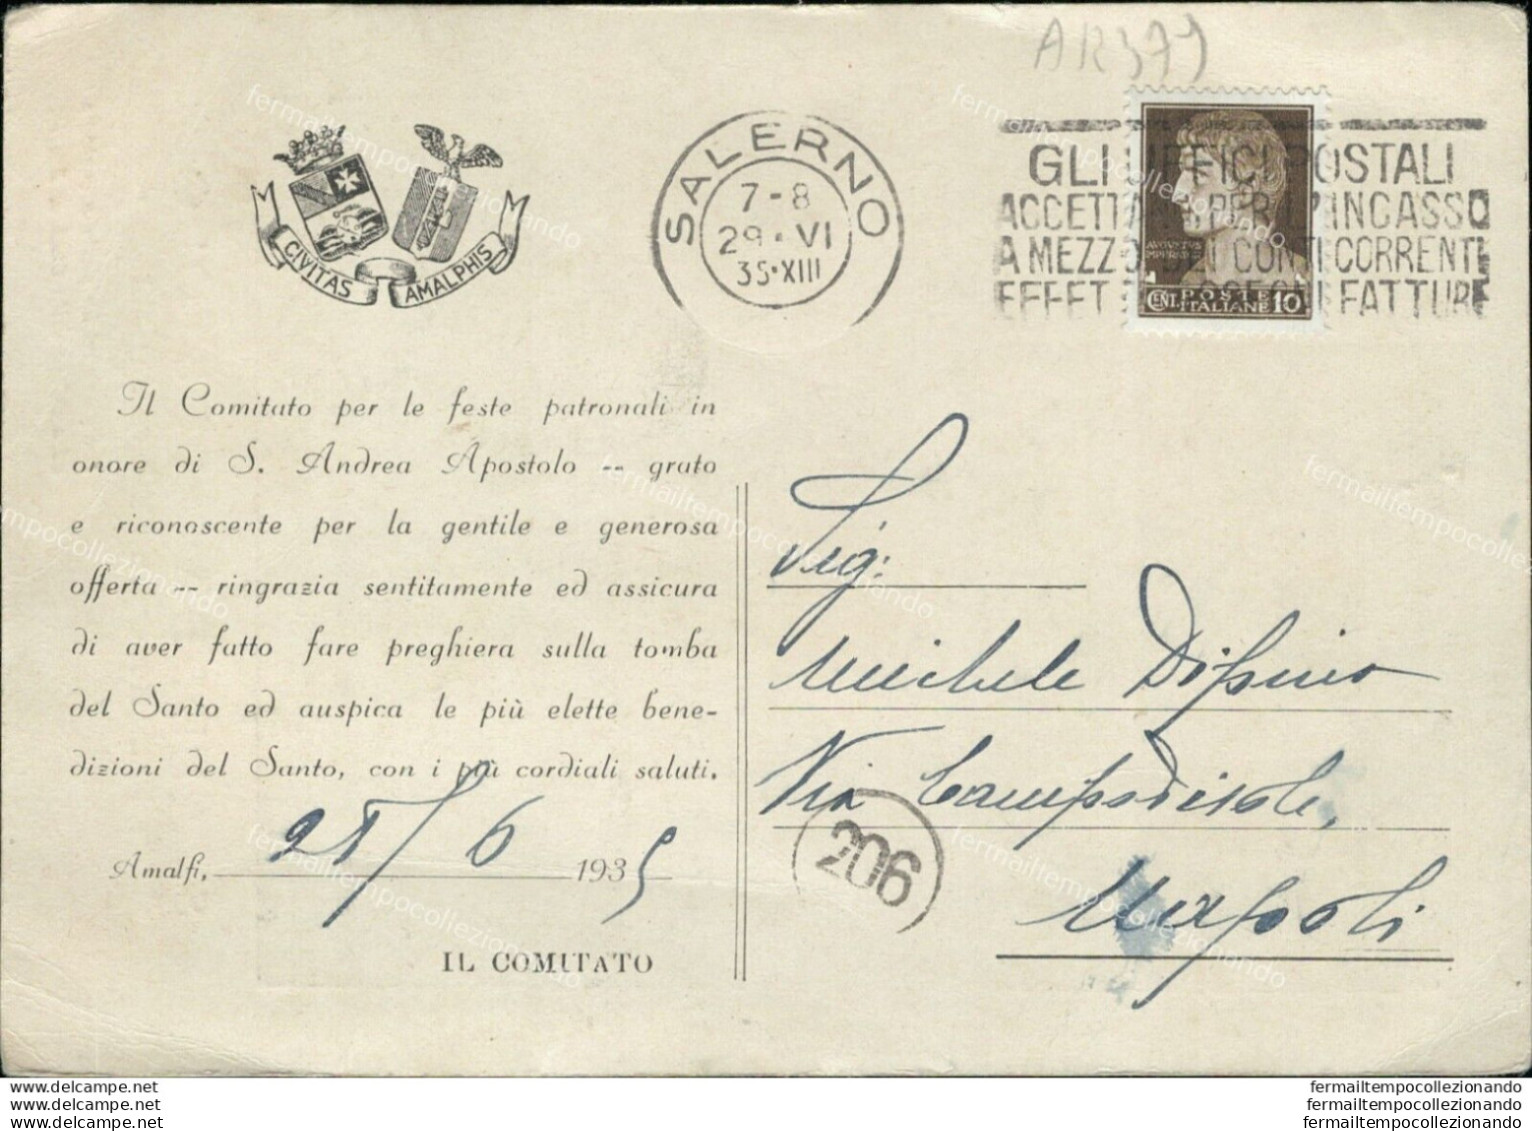 AR 379
SALERNO
7-8
29·VI
35·XIII
GLI UFFICI POSTALI
ACCETTANO PER L'INCASSO
A MEZZO DEI CONTI CORRENTI
EFFETTI ASSEGNI FATTURE
AVGVSTVS
IMPERAT
CENT. POSTE ITALIANE 10
CIVITAS AMALPHIS
Il Comitato per le feste patronali in
onore di S. Andrea Apostolo -- grato
e riconoscente per la gentile e generosa
offerta -- ringrazia sentitamente ed assicura
di aver fatto fare preghiera sulla tomba
del Santo ed auspica le più elette bene-
dizioni del Santo, con i più cordiali saluti.
Amalfi, 28/6 1935
IL COMITATO
Sig:
Michele
Via Campodisola,
206
Napoli
fermailtempocollezionando
www.delcampe.net
www.delcampe.net
www.delcampe.net
fermailtempocollezionando
fermailtempocollezionando
fermailtempocollezionando